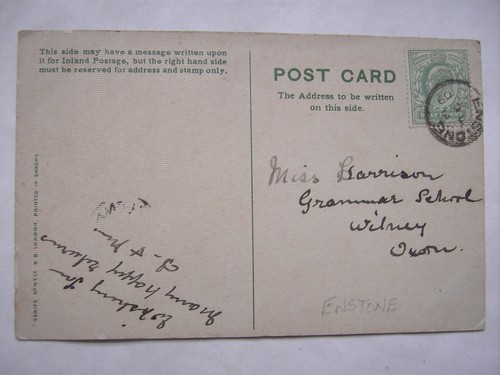 This side may have a message written upon
it for Inland Postage, but the right hand side
must be reserved for address and stamp only.
POST CARD
The Address to be written
on this side.
ENSTONE
Miss Harrison
Grammar School
Witney
Oxon.
ENSTONE
Wishing you
many happy returns